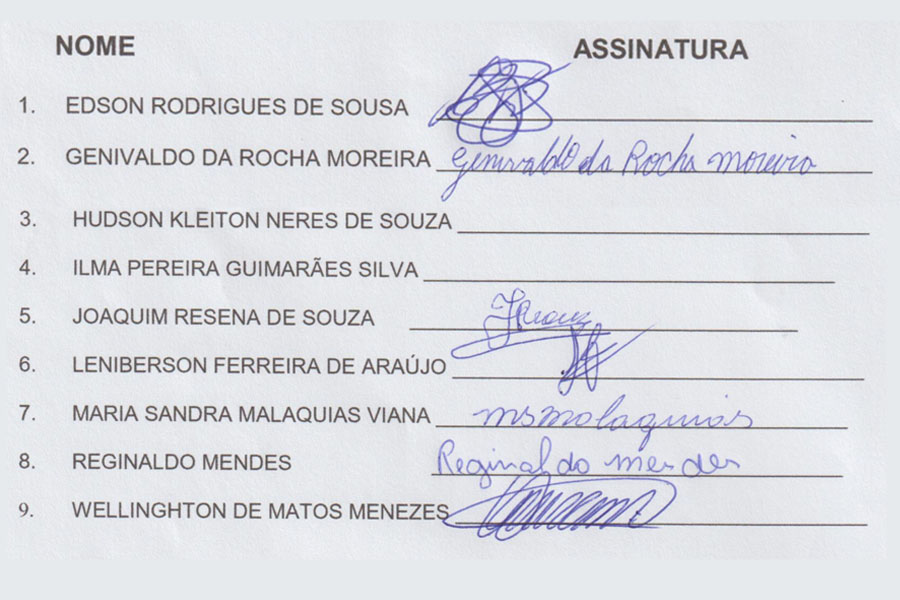 NOME ASSINATURA
1. EDSON RODRIGUES DE SOUSA
2. GENIVALDO DA ROCHA MOREIRA Genivaldo da Rocha Moreira
3. HUDSON KLEITON NERES DE SOUZA
4. ILMA PEREIRA GUIMARÃES SILVA
5. JOAQUIM RESENA DE SOUZA
6. LENIBERSON FERREIRA DE ARAÚJO
7. MARIA SANDRA MALAQUIAS VIANA msmalaquias
8. REGINALDO MENDES Reginaldo mendes
9. WELLINGHTON DE MATOS MENEZES